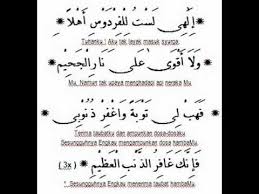 إِلٰهِي لَسْتُ لِلْفِرْدَوْسِ أَهْلًا
Tuhanku ! Aku tak layak masuk syurga.
وَلَا أَقْوَى عَلَى نَارِ الْجَحِيْمِ
Mu, Namun tak upaya menghadapi api neraka Mu.
فَهَبْ لِي تَوْبَةً وَاغْفِرْ ذُنُوْبِي
Terima taubatku dan ampunkan dosa-dosaku
Sesungguhnya Engkau mengampunkan dosa hambaMu.
فَإِنَّكَ غَافِرُ الذَّنْبِ الْعَظِيْمِ (3x)
Sesungguhnya Engkau menerima taubat hambaMu